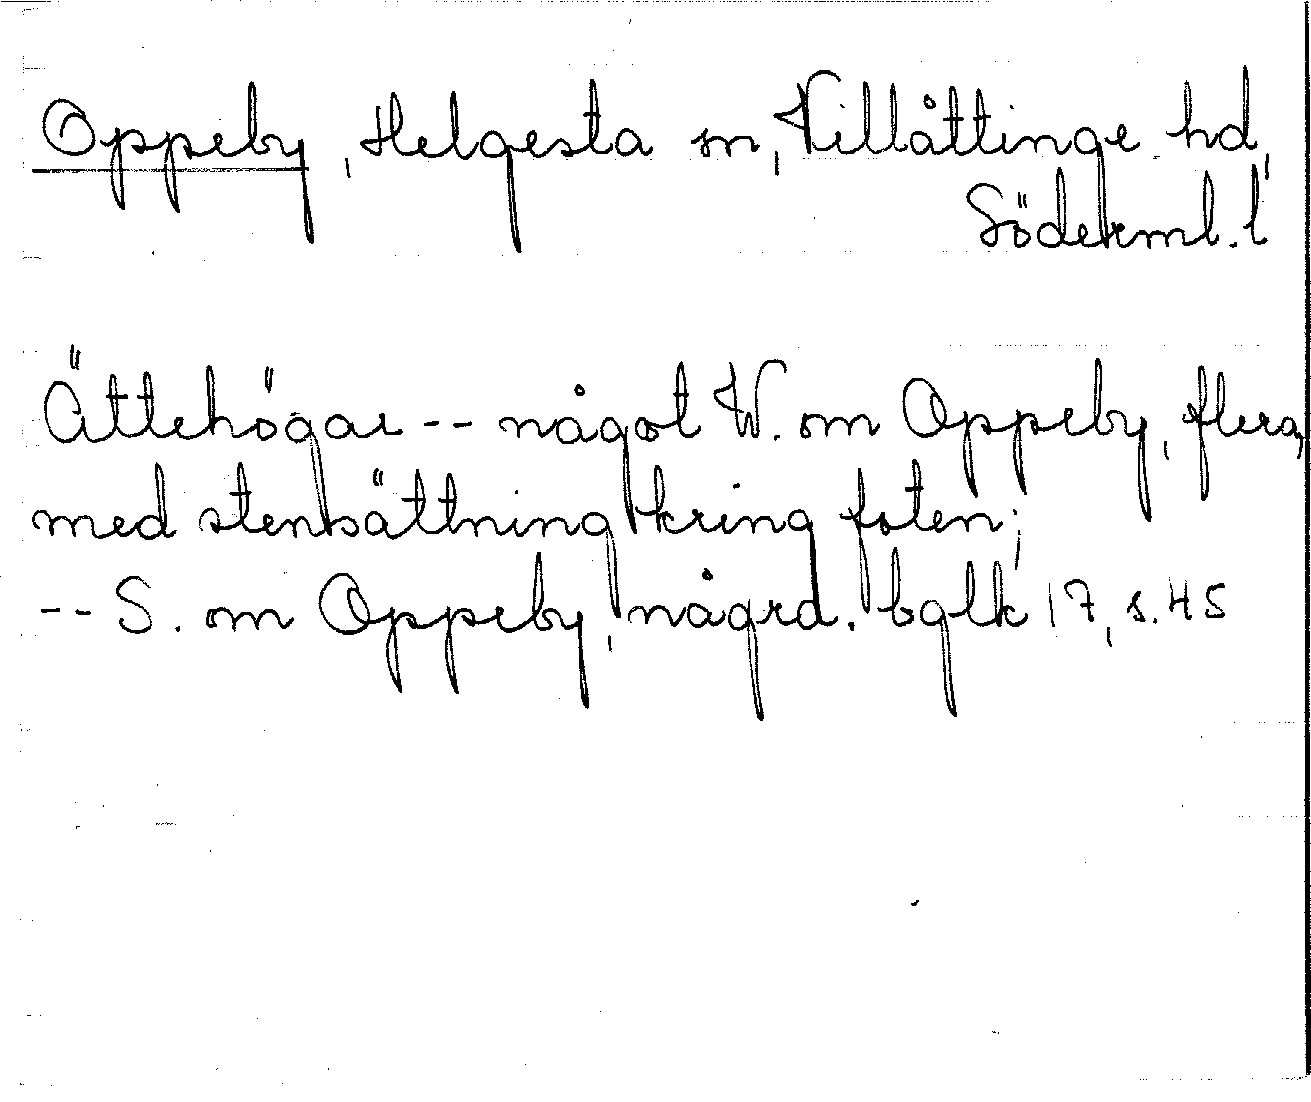 Oppeby, Helgesta sn, Villåttinge hd,
Söderml. l
Ättehögar -- något W. om Oppeby, flera,
med stensättning kring foten;
-- S. om Oppeby, några. bglk 17, s. 45